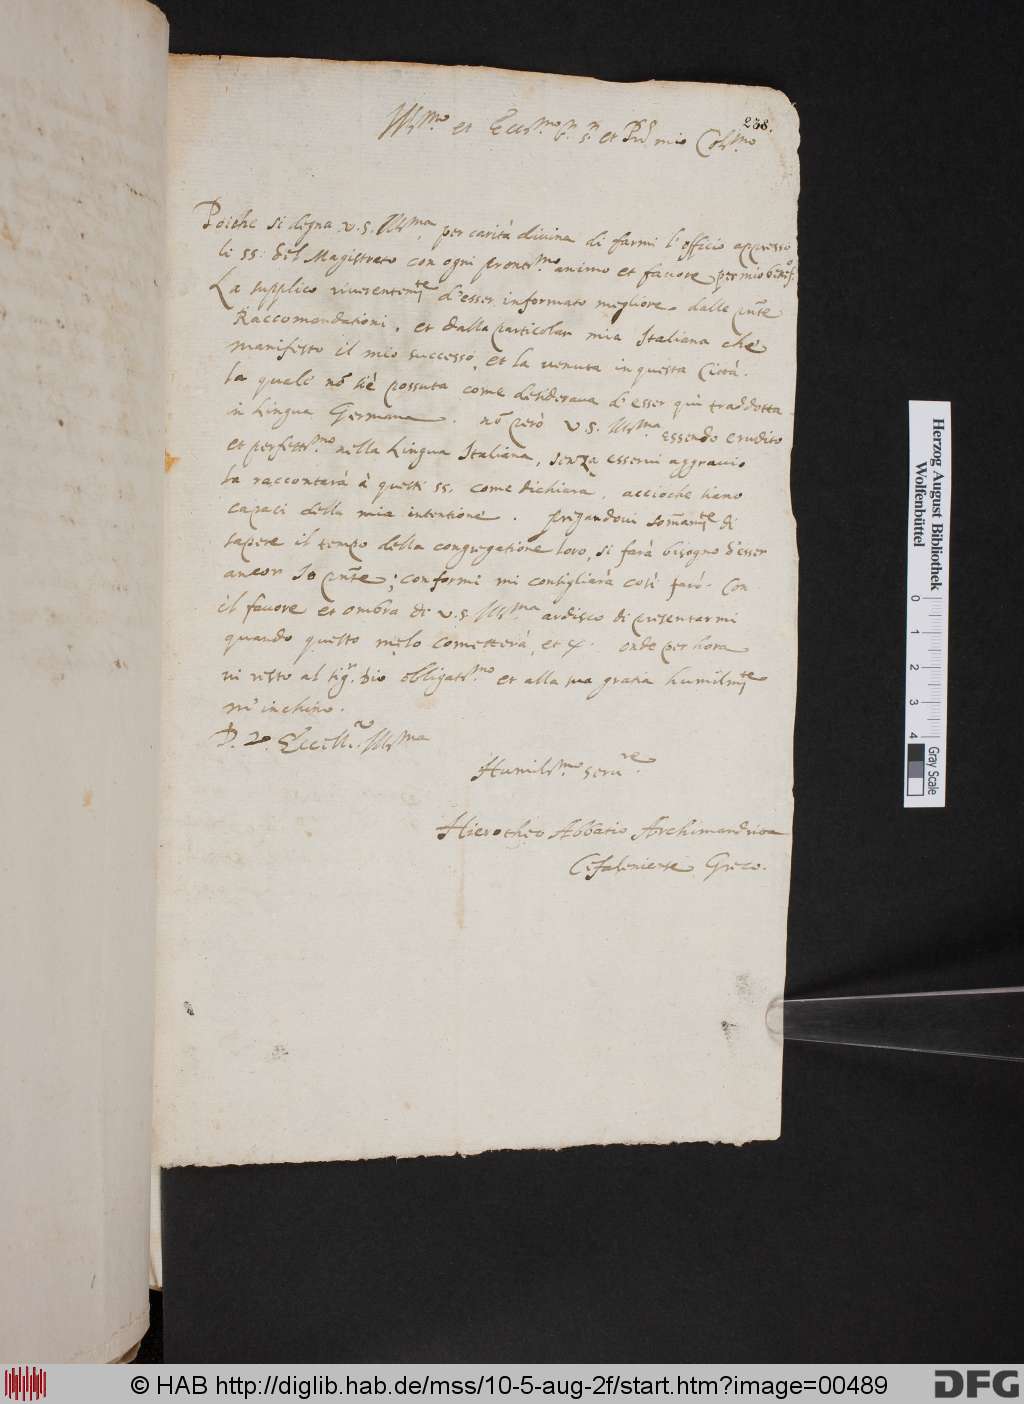 238.
Ill.mo et Ecc.mo S.r et Pn mio Col.mo
Poiche si degna V.S. Ill.ma per carità divina di farmi l'officio appresso
li SS: del Magistrato con ogni pront.mo animo et favore per mio benof.
La supplico riverentem.te d'esser informato megliore dalle pnte
Raccomandationi, et dalla particolar mia Italiana che
manifesto il mio successo, et la venuta in questa Città.
la quale nõ s'è possuta come desiderava d'esser quì traddotta
in Lingua Germana. nõ però V.S. Ill.ma essendo erudito
et perfett.mo nella Lingua Italiana, senza esservi aggravio
la raccontarà à questi SS. come dichiara, accioche siano
capaci della mia intentione. pregandovi som̃am.te di
sapere il tempo della congregatione loro, si farà bisogno d'esser
ancor Io pñte; conformi mi consigliarà così farò. Con
il favore et ombra di V.S. Ill.ma ardisco di presentarmi
quando questo melo cometterà, et c. onde per hora
vi resto al sig.r Dio obligat.mo et alla sua gratia humilm.te
m'inchino.
D. V. Eccell. Ill.ma
Humiliss.mo serv.re
Hierotheo Abbatio Archimandrita
Cefaleniense Greco.
Herzog August Bibliothek
Wolfenbüttel
0 1 2 3 4
Gray Scale
© HAB http://diglib.hab.de/mss/10-5-aug-2f/start.htm?image=00489
DFG